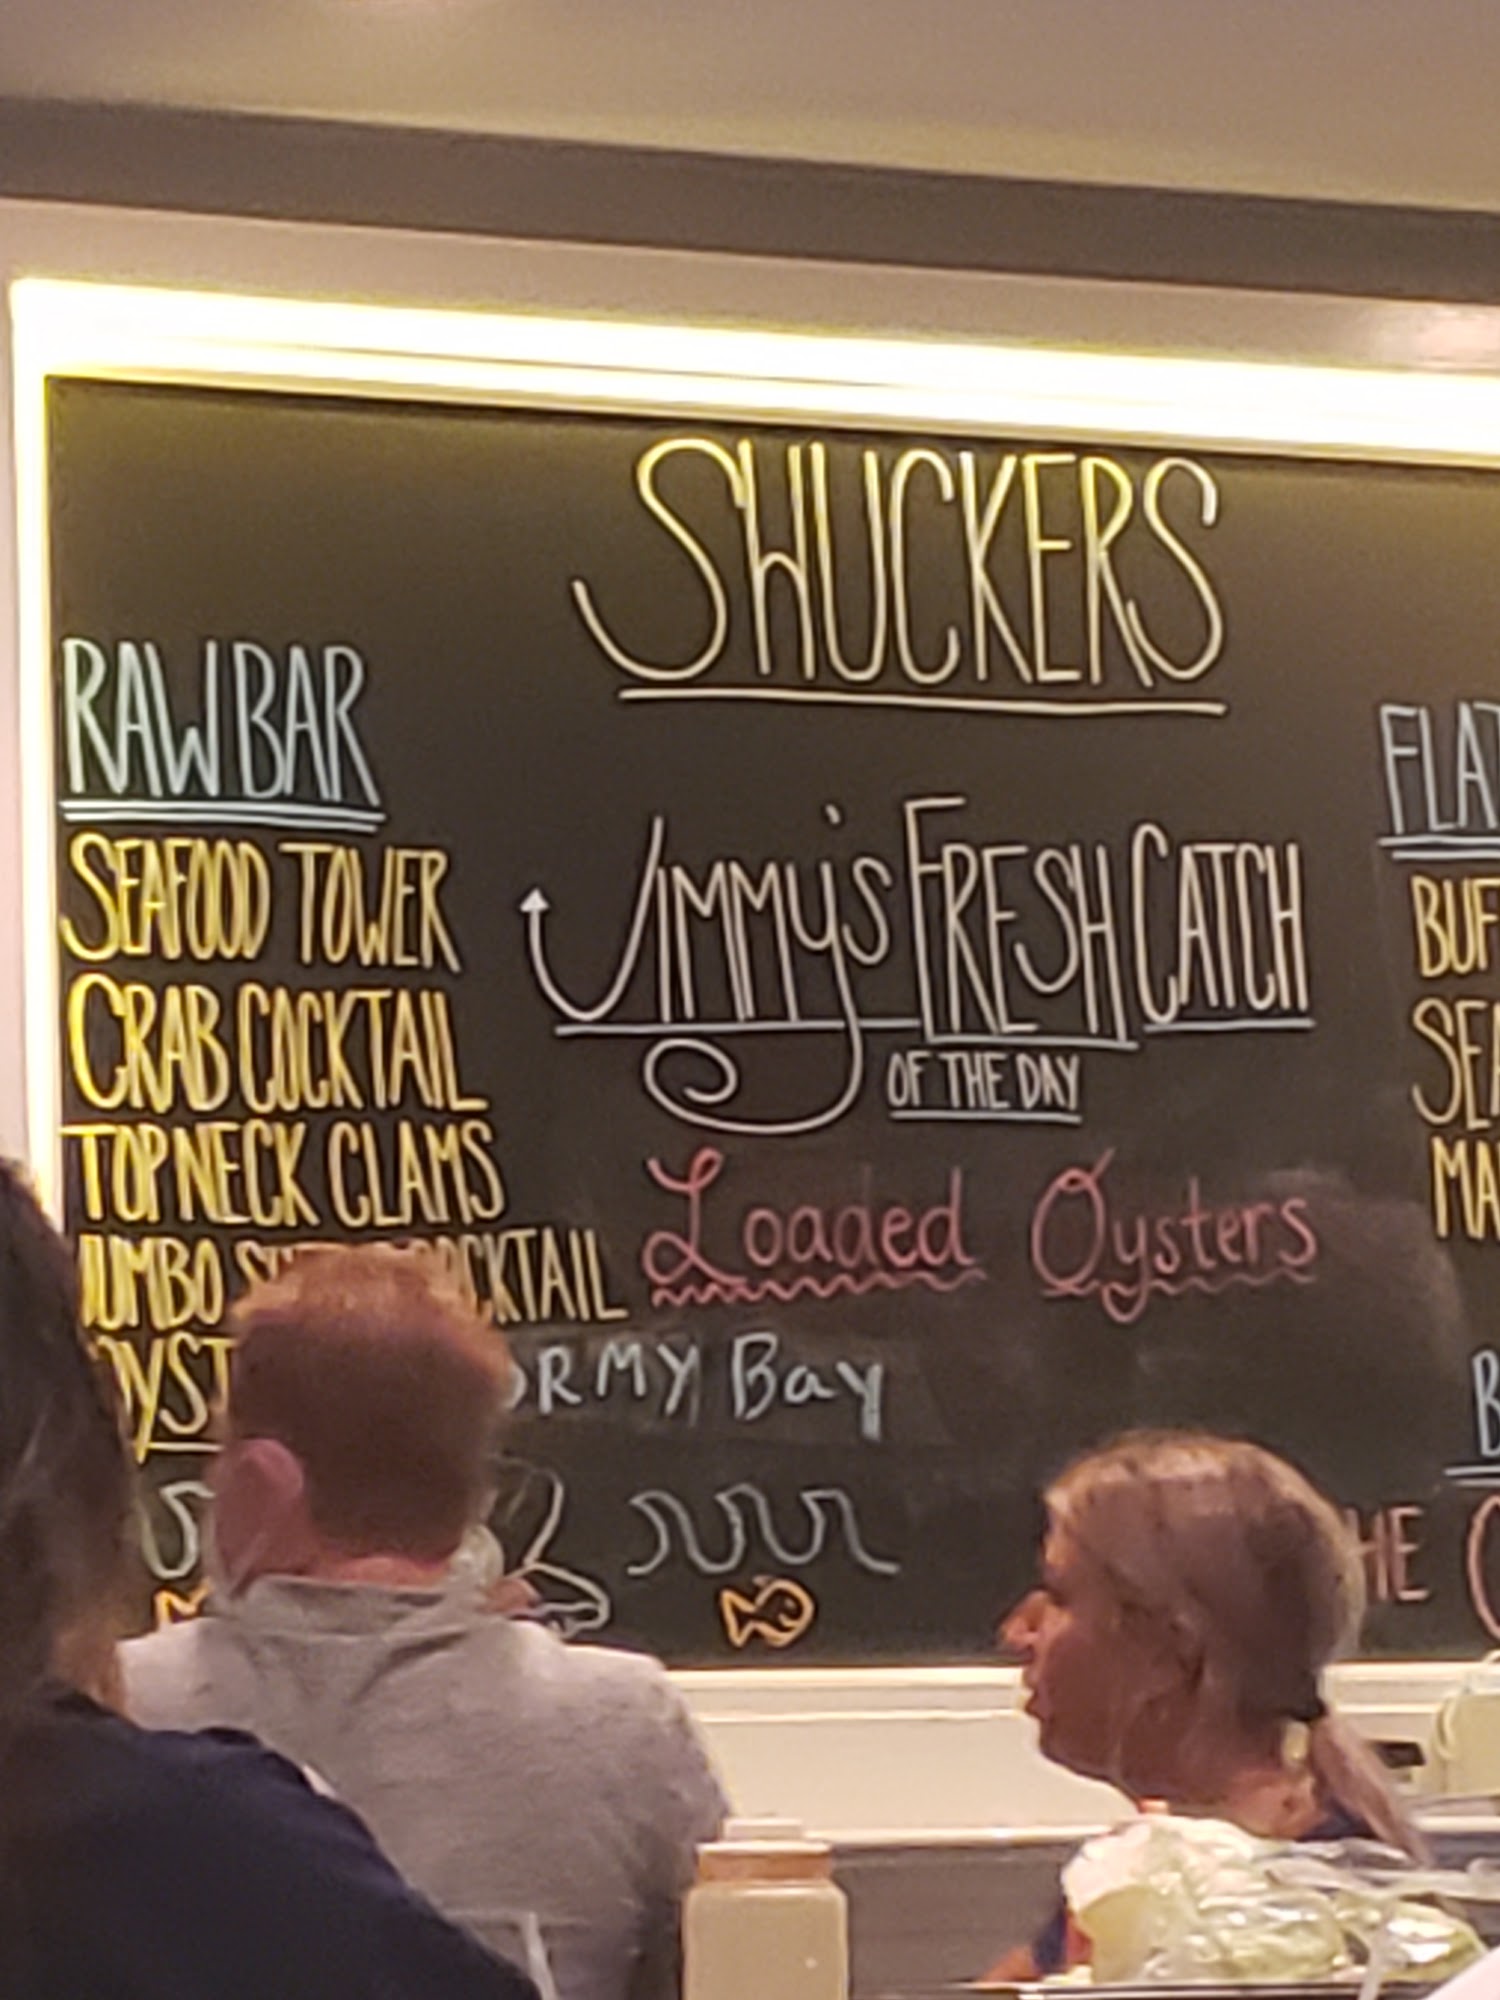 SHUCKERS
RAW BAR
SEAFOOD TOWER
CRAB COCKTAIL
TOPNECK CLAMS
JUMBO
OYST
ORMY Bay
Jimmy's FRESH CATCH
OF THE DAY
Loaded Oysters
FLAT
BUF
SEA
MA
B
HE